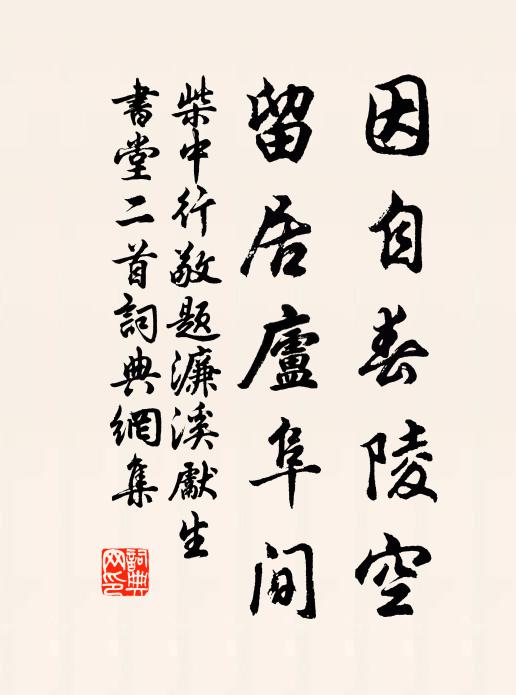 因自春陵空
留居廬阜間
柴中行敬題濂溪獻生
書堂二首詞典網集
詞典
网印